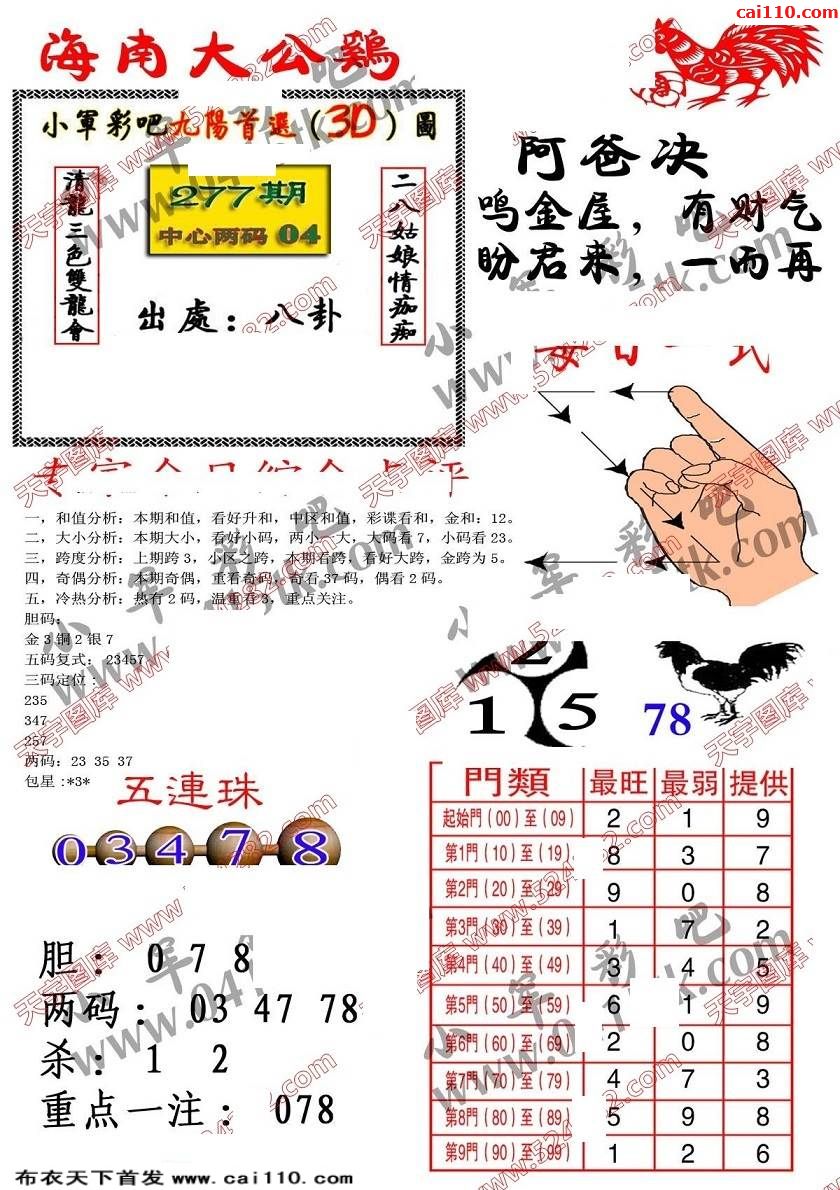 cai110.com
海南大公鷄
小軍彩吧九陽首選(3D)圖
277期
中心两码 04
清龍三色雙龍會
二八姑娘情痴痴
出處：八卦
阿爸决
鸣金屋，有财气
盼君来，一而再
一，和值分析：本期和值，看好升和，中区和值，彩谍看和，金和：12。
二，大小分析：本期大小，看好小码，两小一大，大码看7，小码看23。
三，跨度分析：上期跨3，小区之跨，本期看跨，看好大跨，金跨为5。
四，奇偶分析：本期奇偶，重看奇码，奇看37码，偶看2码。
五，冷热分析：热有2码，温重看3，重点关注。
胆码：
金3铜2银7
五码复式：23457
三码定位：
235
347
257
两码：23 35 37
包星:*3*
2
1 5
78
五連珠
0 3 4 7 8
胆： 0 7 8
两码： 03 47 78
杀： 1 2
重点一注： 078
布衣天下首发 www.cai110.com
門類 最旺 最弱 提供
起始門(00)至(09) 2 1 9
第1門(10)至(19) 8 3 7
第2門(20)至(29) 9 0 8
第3門(30)至(39) 1 7 2
第4門(40)至(49) 3 4 5
第5門(50)至(59) 6 1 9
第6門(60)至(69) 2 0 8
第7門(70)至(79) 4 7 3
第8門(80)至(89) 5 9 8
第9門(90)至(99) 1 2 6